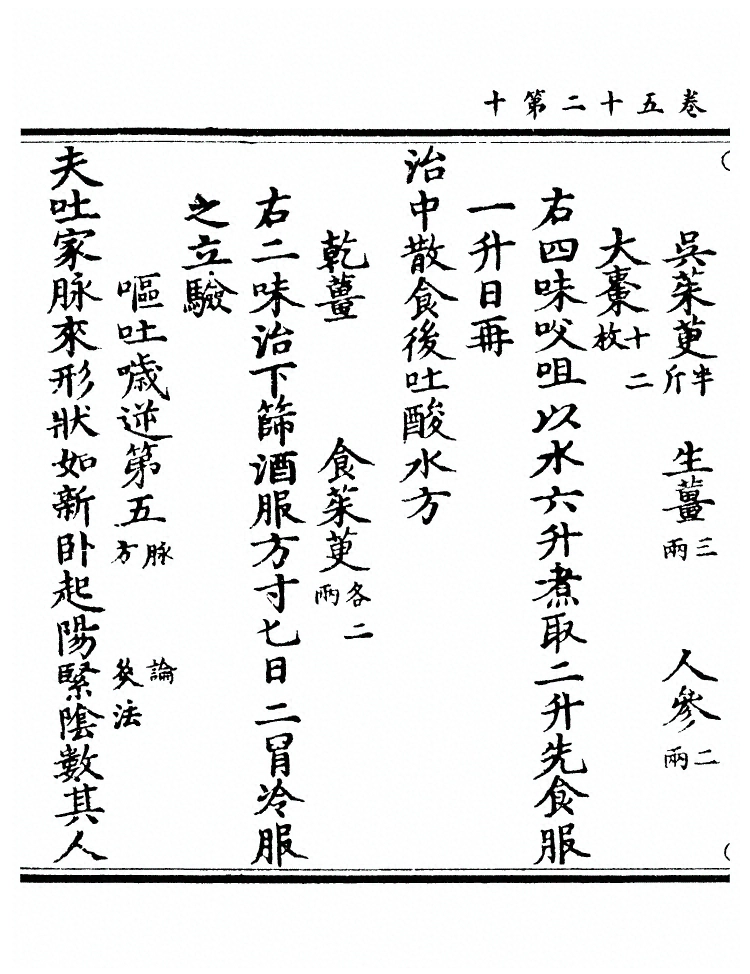 卷五十二第十
吳茱萸半斤 生薑三兩 人參二兩
大棗十二枚
右四味㕮咀以水六升煮取二升先食服
一升日再
治中散食後吐酸水方
乾薑 食茱萸各二兩
右二味治下篩酒服方寸匕日二胃冷服
之立驗
嘔吐噦逆第五 脉 論 方 灸法
夫吐家脉來形狀如新卧起陽緊陰數其人